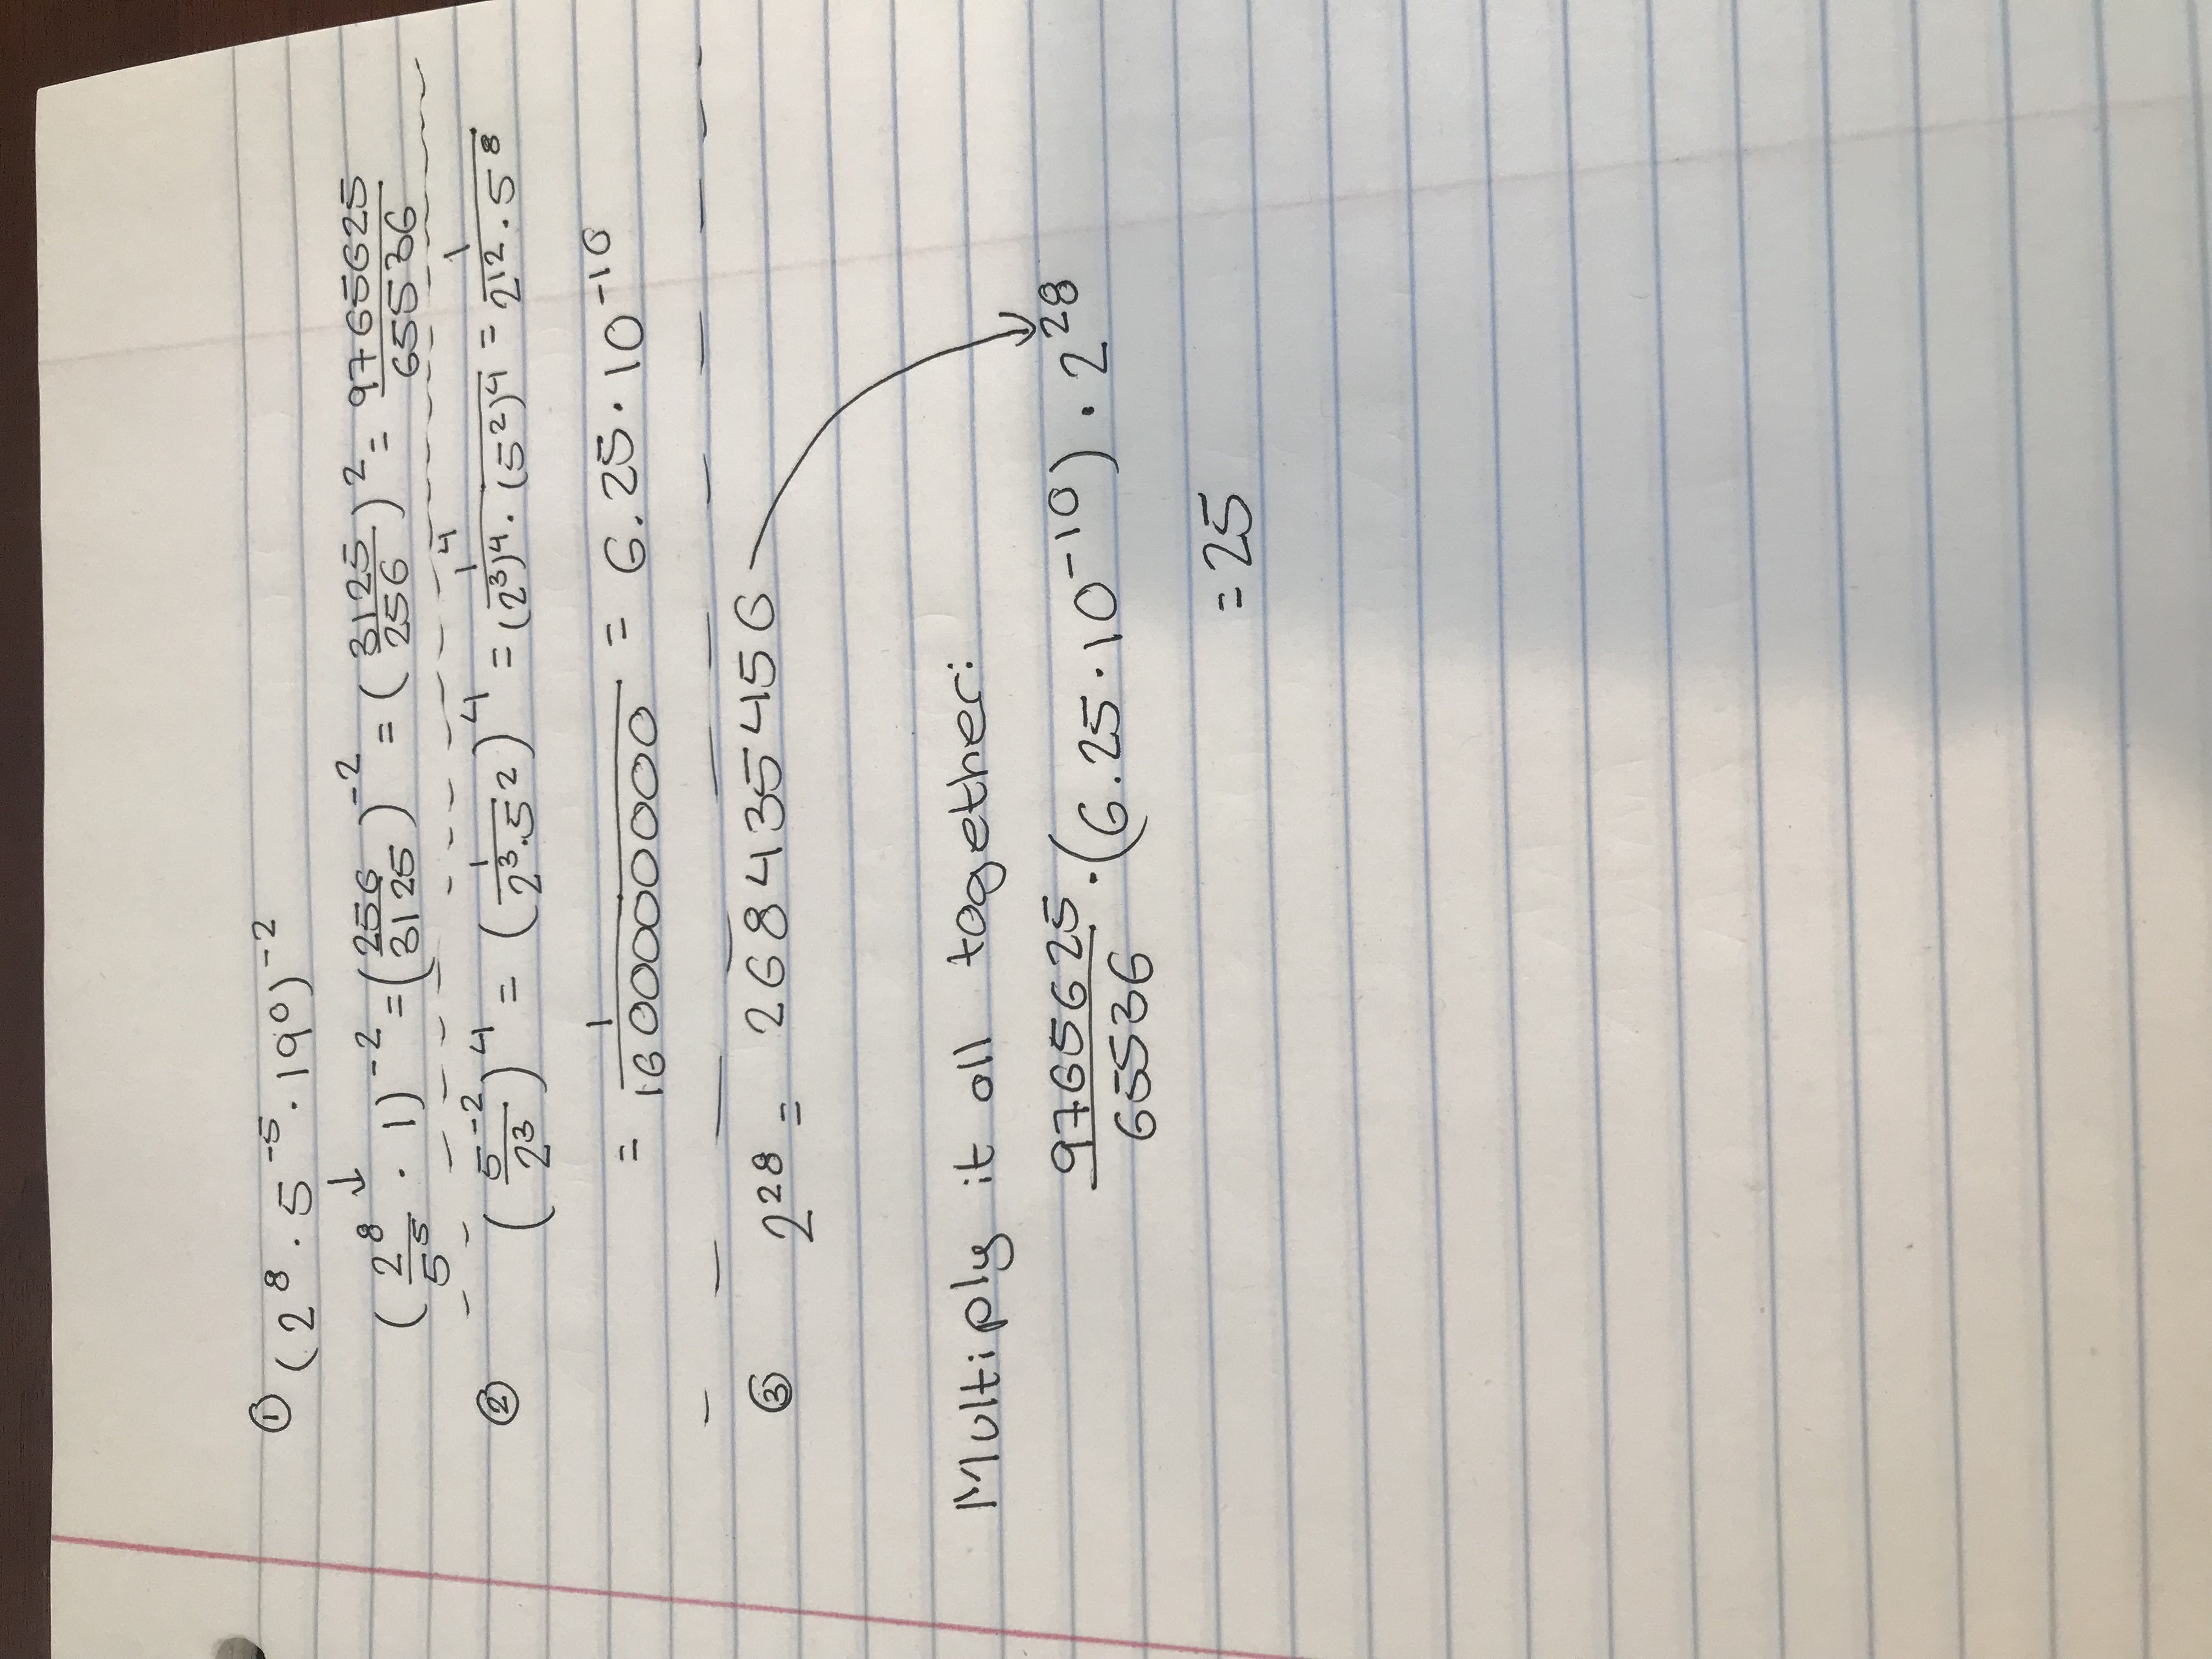 ① (2⁸ · 5⁻⁵ · 19⁰)⁻²
(2⁸/5⁵ · 1)⁻² = (256/3125)⁻² = (3125/256)² = 9765625/65536
② (5⁻²/2³)⁴ = (1/2³·5²)⁴ = 1⁴/(2³)⁴·(5²)⁴ = 1/2¹²·5⁸
= 1/1600000000 = 6.25·10⁻¹⁰
③ 2²⁸ = 268435456
Multiply it all together:
9765625/65536 · (6.25·10⁻¹⁰) · 2²⁸
= 25